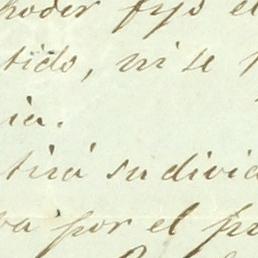 poder fijo el
tido, ni se
ia.
tirá su divid
va por el pr